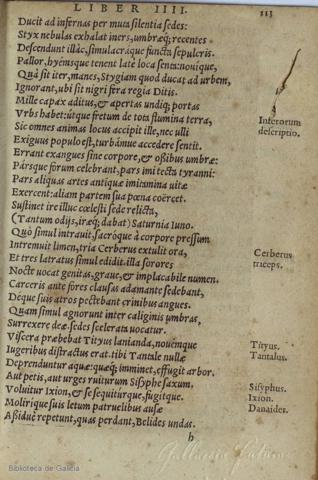 LIBER IIII. 113
Ducit ad infernas per muta silentia sedes:
Styx nebulas exhalat iners, umbræq; recentes
Descendunt illàc, simulacráque functa sepulcris.
Pallor, hyémsque tenent latè loca senta: nouíque,
Quà sit iter, manes, Stygiam quod ducat ad urbem,
Ignorant, ubi sit nigri fera regia Ditis.
Mille capax aditus, & apertas undiq; portas
Vrbs habet: útque fretum de tota flumina terra,
Inferorum
descriptio.
Sic omnes animas locus accipit ille, nec ulli
Exiguus populo est, turbámue accedere sentit.
Errant exangues sine corpore, & oßibus umbræ:
Pársque forum celebrant, pars imi tecta tyranni:
Pars aliquas artes antiquæ imitamina uitæ
Exercent: aliam partem sua pœna coërcet.
Sustinet ire illuc cœlesti sede relicta,
(Tantum odijs, iræq; dabat) Saturnia Iuno.
Quò simul intrauit, sacróque à corpore pressum
Intremuit limen, tria Cerberus extulit ora,
Cerberus
triceps.
Et tres latratus simul edidit. illa sorores
Nocte uocat genitas, graue, & implacabile numen.
Carceris ante fores clausas adamante sedebant,
Deque suis atros pectebant crinibus angues.
Quam simul agnorunt inter caliginis umbras,
Surrexere deæ. sedes scelerata uocatur.
Viscera præbebat Tityus lanianda, nouémque
Tityus.
Iugeribus distractus erat. tibi Tantale nullæ
Tantalus.
Deprenduntur aquæ: quæq; imminet, effugit arbor.
Aut petis, aut urges ruiturum Sisyphe saxum.
Sisyphus.
Voluitur Ixion, & se sequitúrque, fugitque.
Ixion.
Molirique suis letum patruelibus ausæ
Danaides.
Aßiduè repetunt, quas perdant, Belides undas.
h
Biblioteca de Galicia